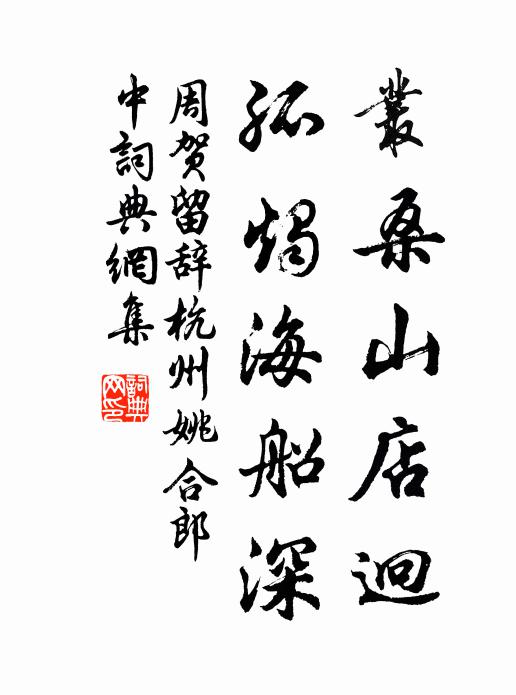 叢桑山店迥
孤燭海船深
周贺留辞杭州姚合郎
中詞典網集
詞典网印